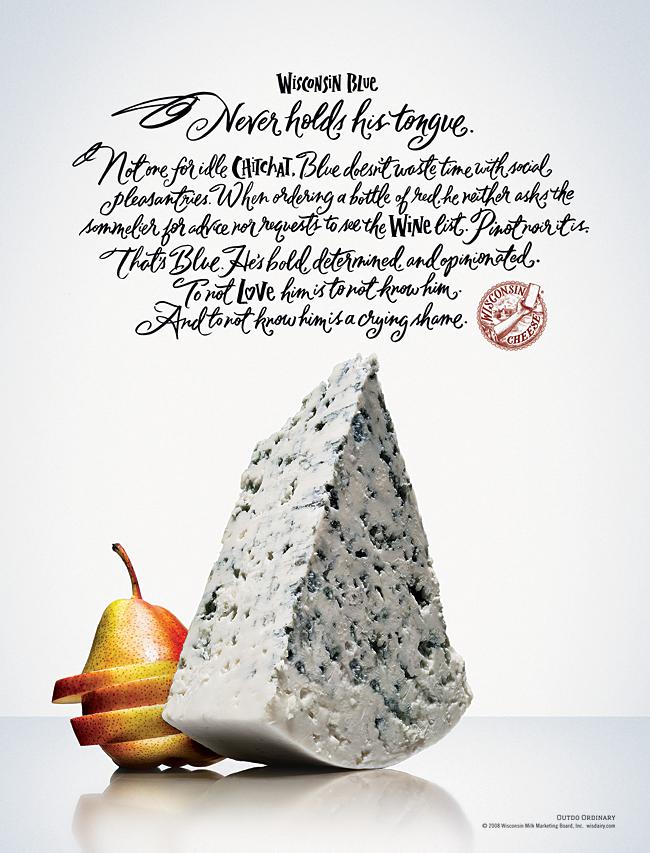 Wisconsin Blue
Never holds his tongue.
Not one for idle CHITCHAT, Blue doesn't waste time with social
pleasantries. When ordering a bottle of red, he neither asks the
sommelier for advice nor requests to see the WINE list. Pinot noir it is.
That's Blue. He's bold, determined, and opinionated.
To not LOVE him is to not know him.
And to not know him is a crying shame.
WISCONSIN
CHEESE
OUTDO ORDINARY
© 2008 Wisconsin Milk Marketing Board, Inc. wisdairy.com